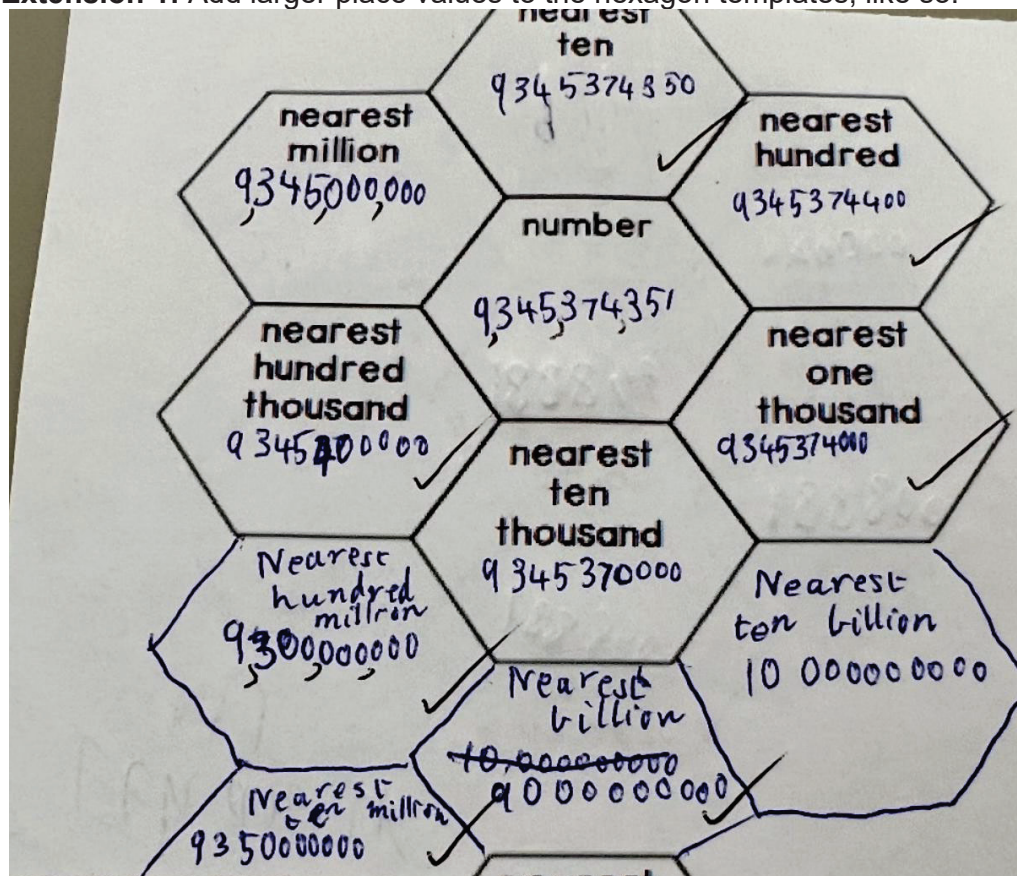 Extension 1: Add larger place values to the hexagon templates, like so:
nearest
ten
9345374350
nearest
million
9,345,000,000
nearest
hundred
9345374400
number
9,345,374,351
nearest
hundred
thousand
9345400000
nearest
one
thousand
9345374000
nearest
ten
thousand
9345370000
Nearest
hundred
million
9,300,000,000
Nearest
billion
10,000000000
9000000000
Nearest
ten billion
10 000000000
Nearest
ten million
9350000000